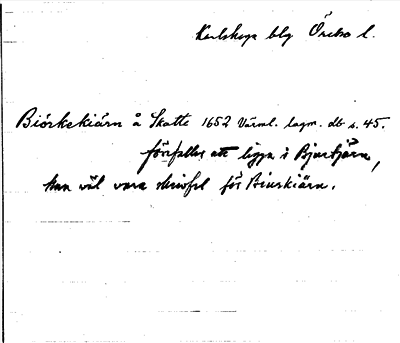 Karlskoga blg Örebro l.
Biörkekiärn å Skatte 1652 Värml. lagm. db s. 45.
förefaller att ligga i Bjurtjärn,
kan väl vara skrivfel för Biurkiärn.